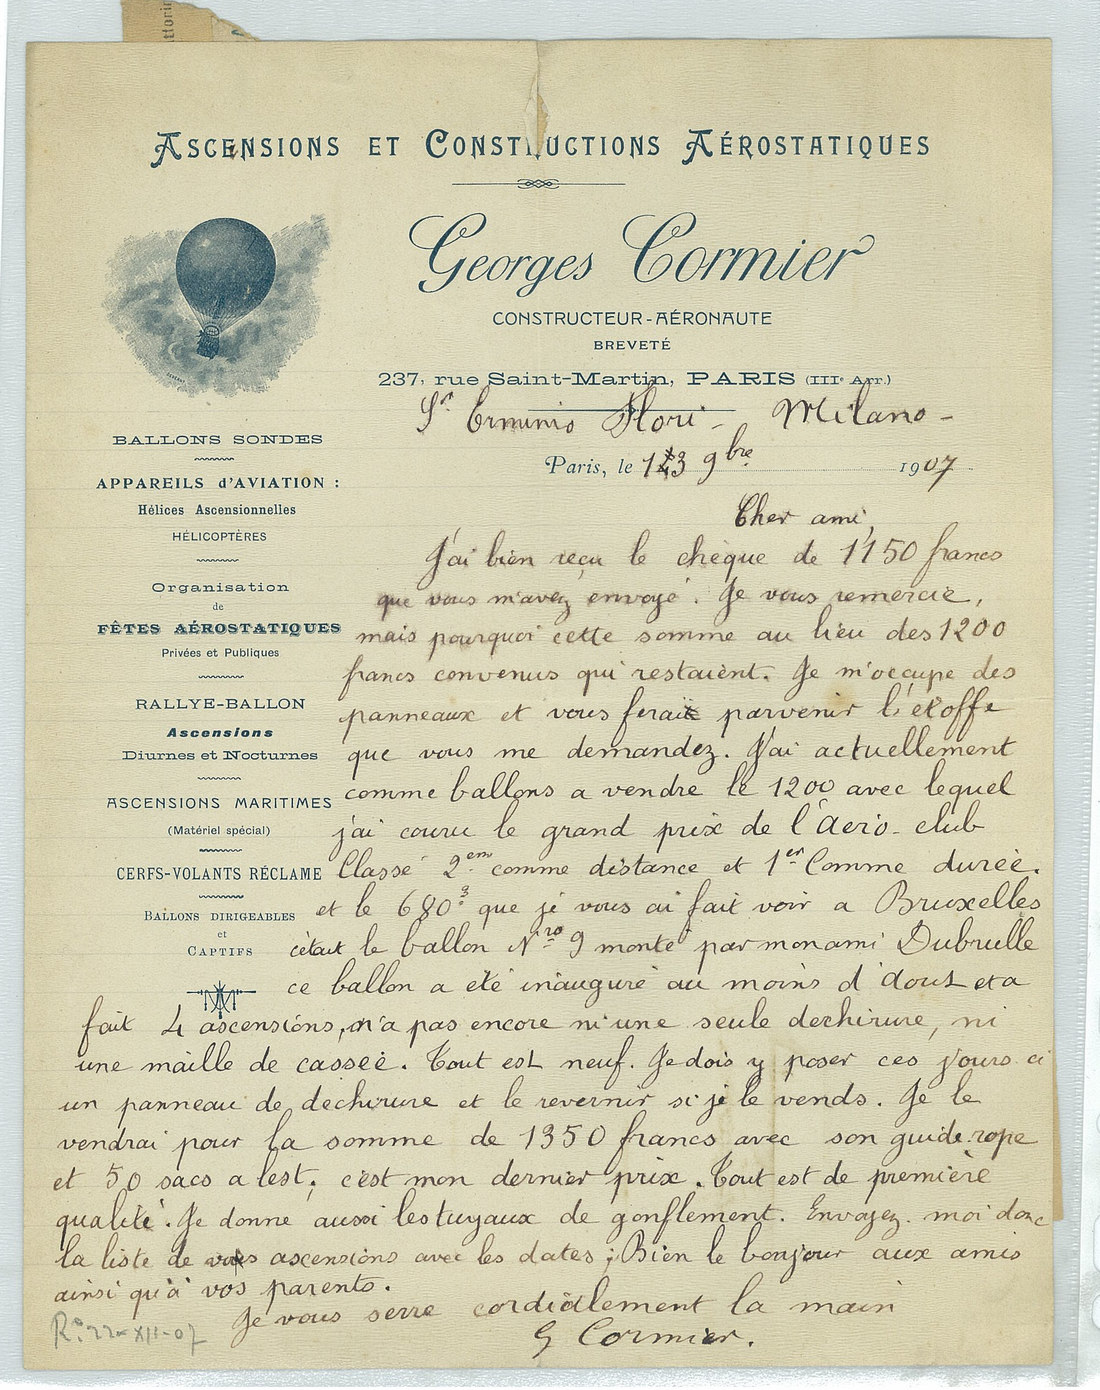 ASCENSIONS ET CONSTRUCTIONS AÉROSTATIQUES
Georges Cormier
CONSTRUCTEUR-AÉRONAUTE
BREVETÉ
237, rue Saint-Martin, PARIS (IIIe Arr.)
Sr. Erminio Flori - Milano -
Paris, le 13 9bre 1907
BALLONS SONDES
APPAREILS d'AVIATION :
Hélices Ascensionnelles
HÉLICOPTÈRES
Organisation
de
FÊTES AÉROSTATIQUES
Privées et Publiques
RALLYE-BALLON
Ascensions
Diurnes et Nocturnes
ASCENSIONS MARITIMES
(Matériel spécial)
CERFS-VOLANTS RÉCLAME
BALLONS DIRIGEABLES
et
CAPTIFS
Cher ami,
J'ai bien reçu le chèque de 1150 francs
que vous m'avez envoyé. Je vous remercie,
mais pourquoi cette somme au lieu des 1200
francs convenus qui restaient. Je m'occupe des
panneaux et vous ferait parvenir l'étoffe
que vous me demandez. J'ai actuellement
comme ballons a vendre le 1200 avec lequel
j'ai couru le grand prix de l'Aéro-club
Classé 2em comme distance et 1er Comme durée.
et le 680.3 que je vous ai fait voir a Bruxelles
c'était le ballon Nro 9 monté par mon ami Dubrulle
ce ballon a été inauguré au moins d'doust et a
fait 4 ascensions, n'a pas encore ni une seule dechirure, ni
une maille de casseé. Tout est neuf. Je dois y poser ces jours ci
un panneau de dechirure et le revernir si je le vends. Je le
vendrai pour la somme de 1350 francs avec son guide-rope
et 50 sacs a lest; c'est mon dernier prix. Tout est de première
qualité. Je donne aussi les tuyaux de gonflement. Envoyez-moi donc
la liste de vos ascensions avec les dates; Bien le bonjour aux amis
ainsi qu'à vos parents.
Je vous serre cordialement la main
G Cormier.
R. 22-XII-07